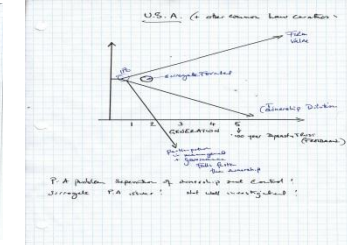 U.S.A. (+ other common Law countries)
Firm
Value
Surrogate Founder
Ownership Dilution
1 2 3 4 5
GENERATION
100 year Dynasty Trust
Participation
in management
+ governance
falls faster
than ownership
P-A problem Separation of ownership and Control!
Surrogate P.A. Not well investigated!